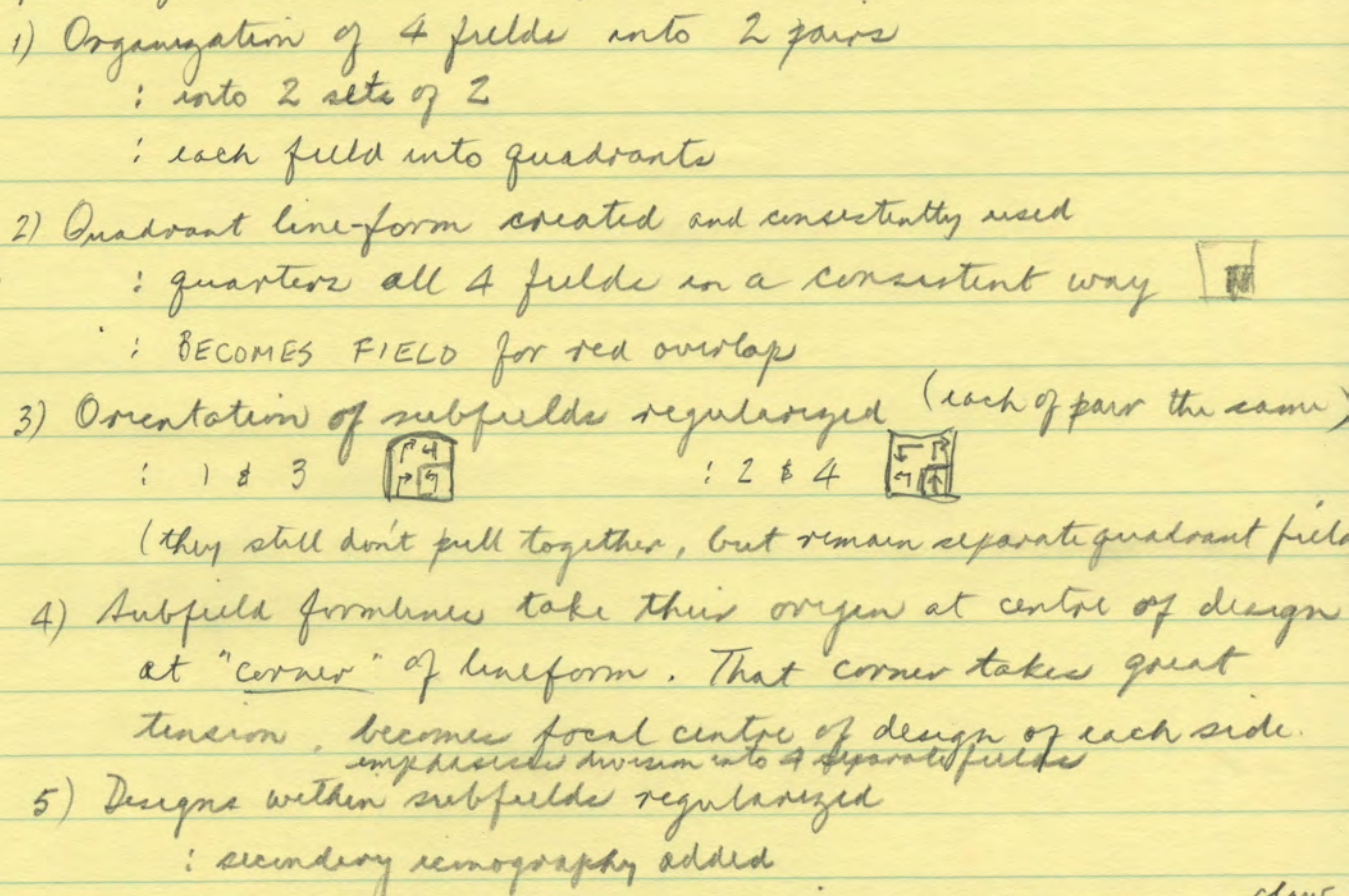 1) Organization of 4 fields into 2 pairs
: into 2 sets of 2
: each field into quadrants
2) Quadrant line-form created and consistently used
: quarters all 4 fields in a consistent way
: BECOMES FIELD for red overlap
3) Orientation of subfields regularized (each of pair the same)
: 1 & 3 : 2 & 4
(they still don't pull together, but remain separate quadrant field
4) Subfield formlines take their origin at centre of design
at "corner" of lineform. That corner takes great
tension, becomes focal centre of design of each side.
emphasises division into 4 separate fields
5) Designs within subfields regularized
: secondary iconography added